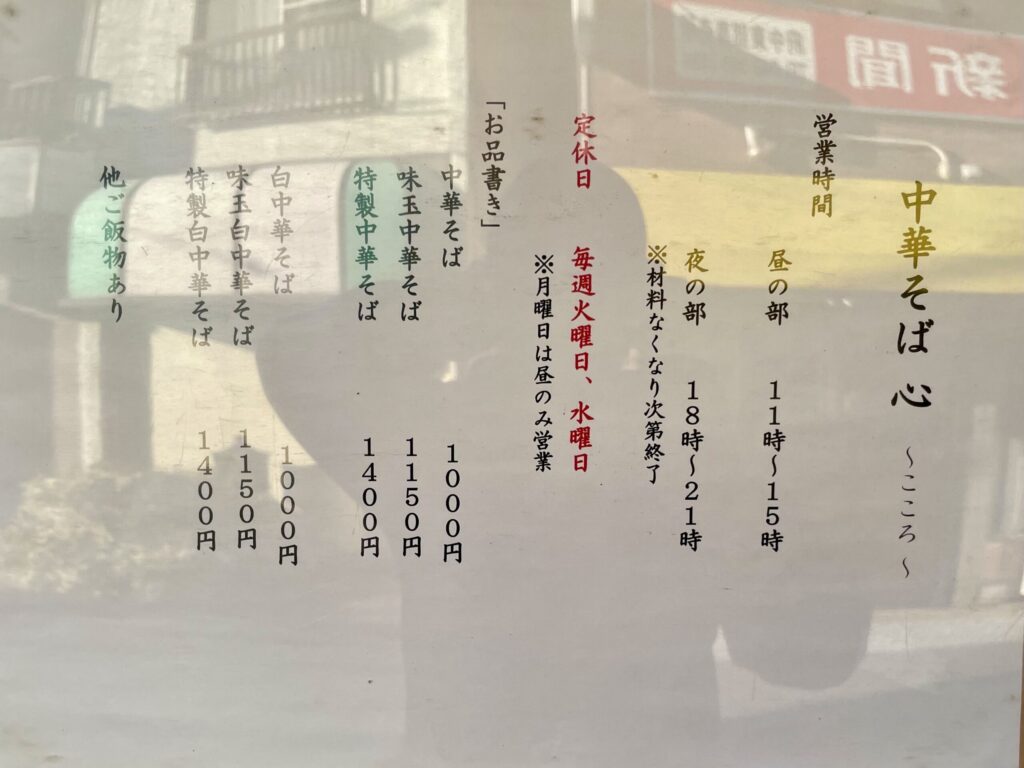 中華そば 心 ～こころ～
営業時間
昼の部 11時～15時
夜の部 18時～21時
※材料なくなり次第終了
定休日 毎週火曜日、水曜日
※月曜日は昼のみ営業
「お品書き」
中華そば 1000円
味玉中華そば 1150円
特製中華そば 1400円
白中華そば 1000円
味玉白中華そば 1150円
特製白中華そば 1400円
他ご飯物あり
新聞